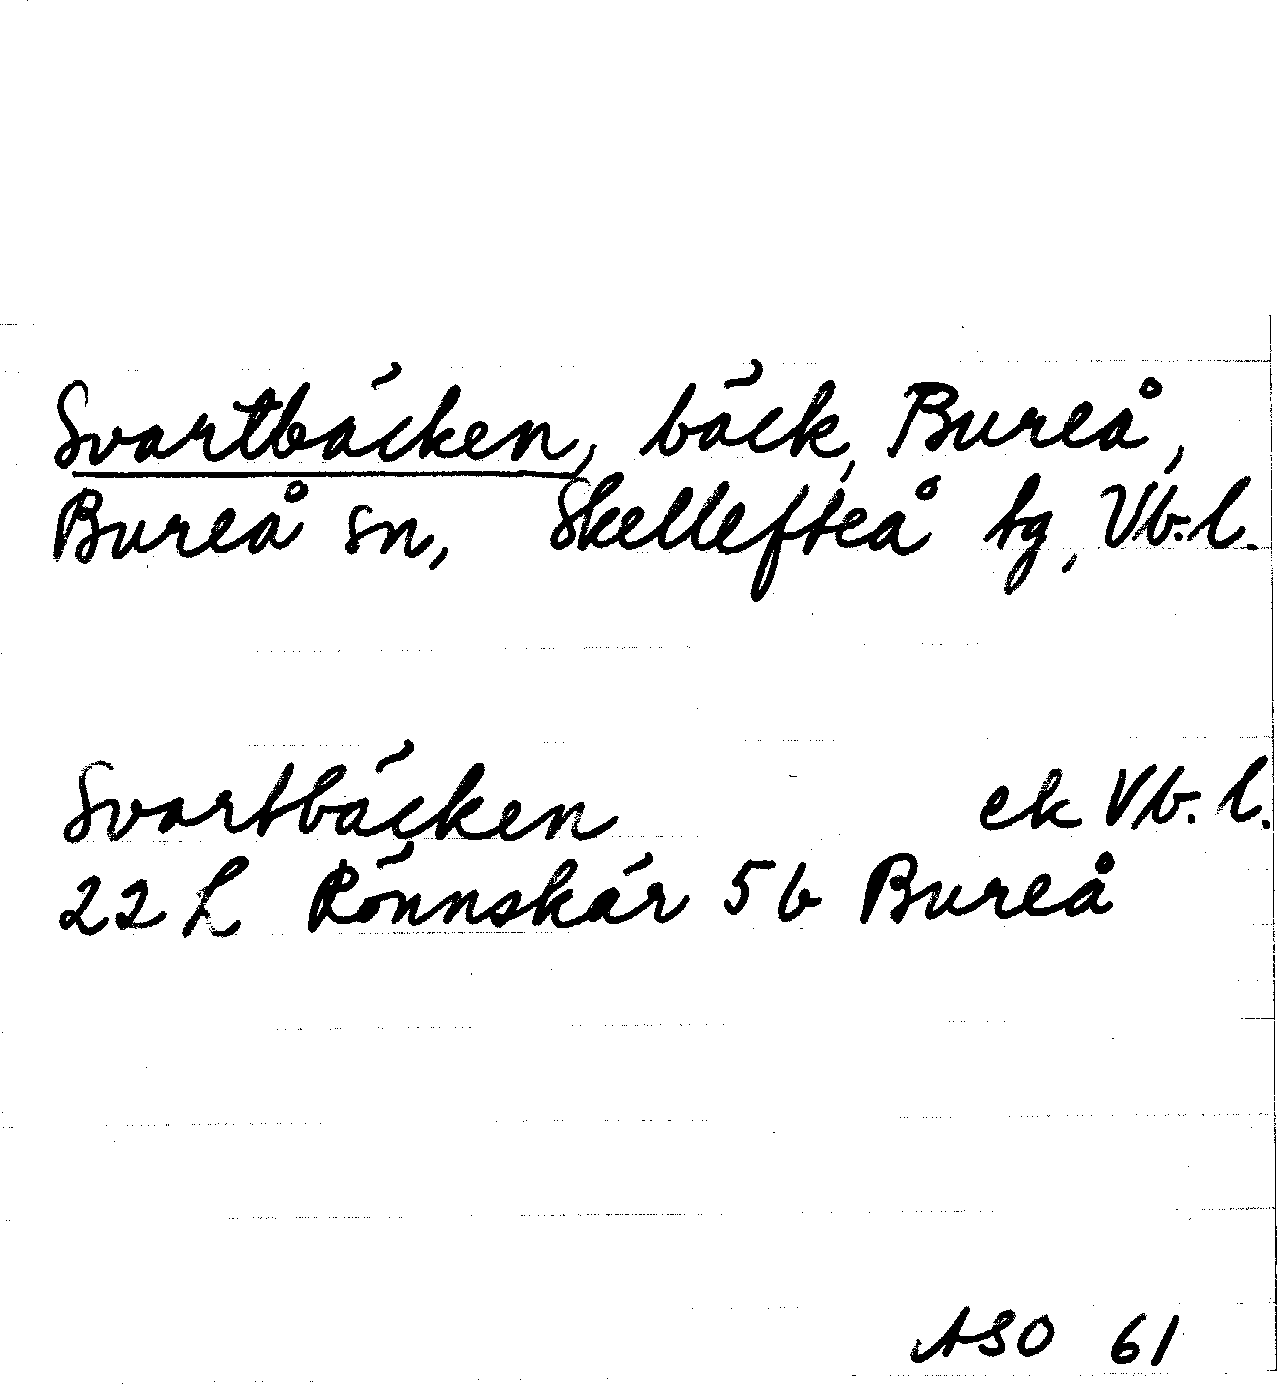 Svartbäcken, bäck, Bureå,
Bureå sn, Skellefteå tg, Vb.l.
Svartbäcken ek Vb.l.
22 L Rönnskär 5b Bureå
ASO 61